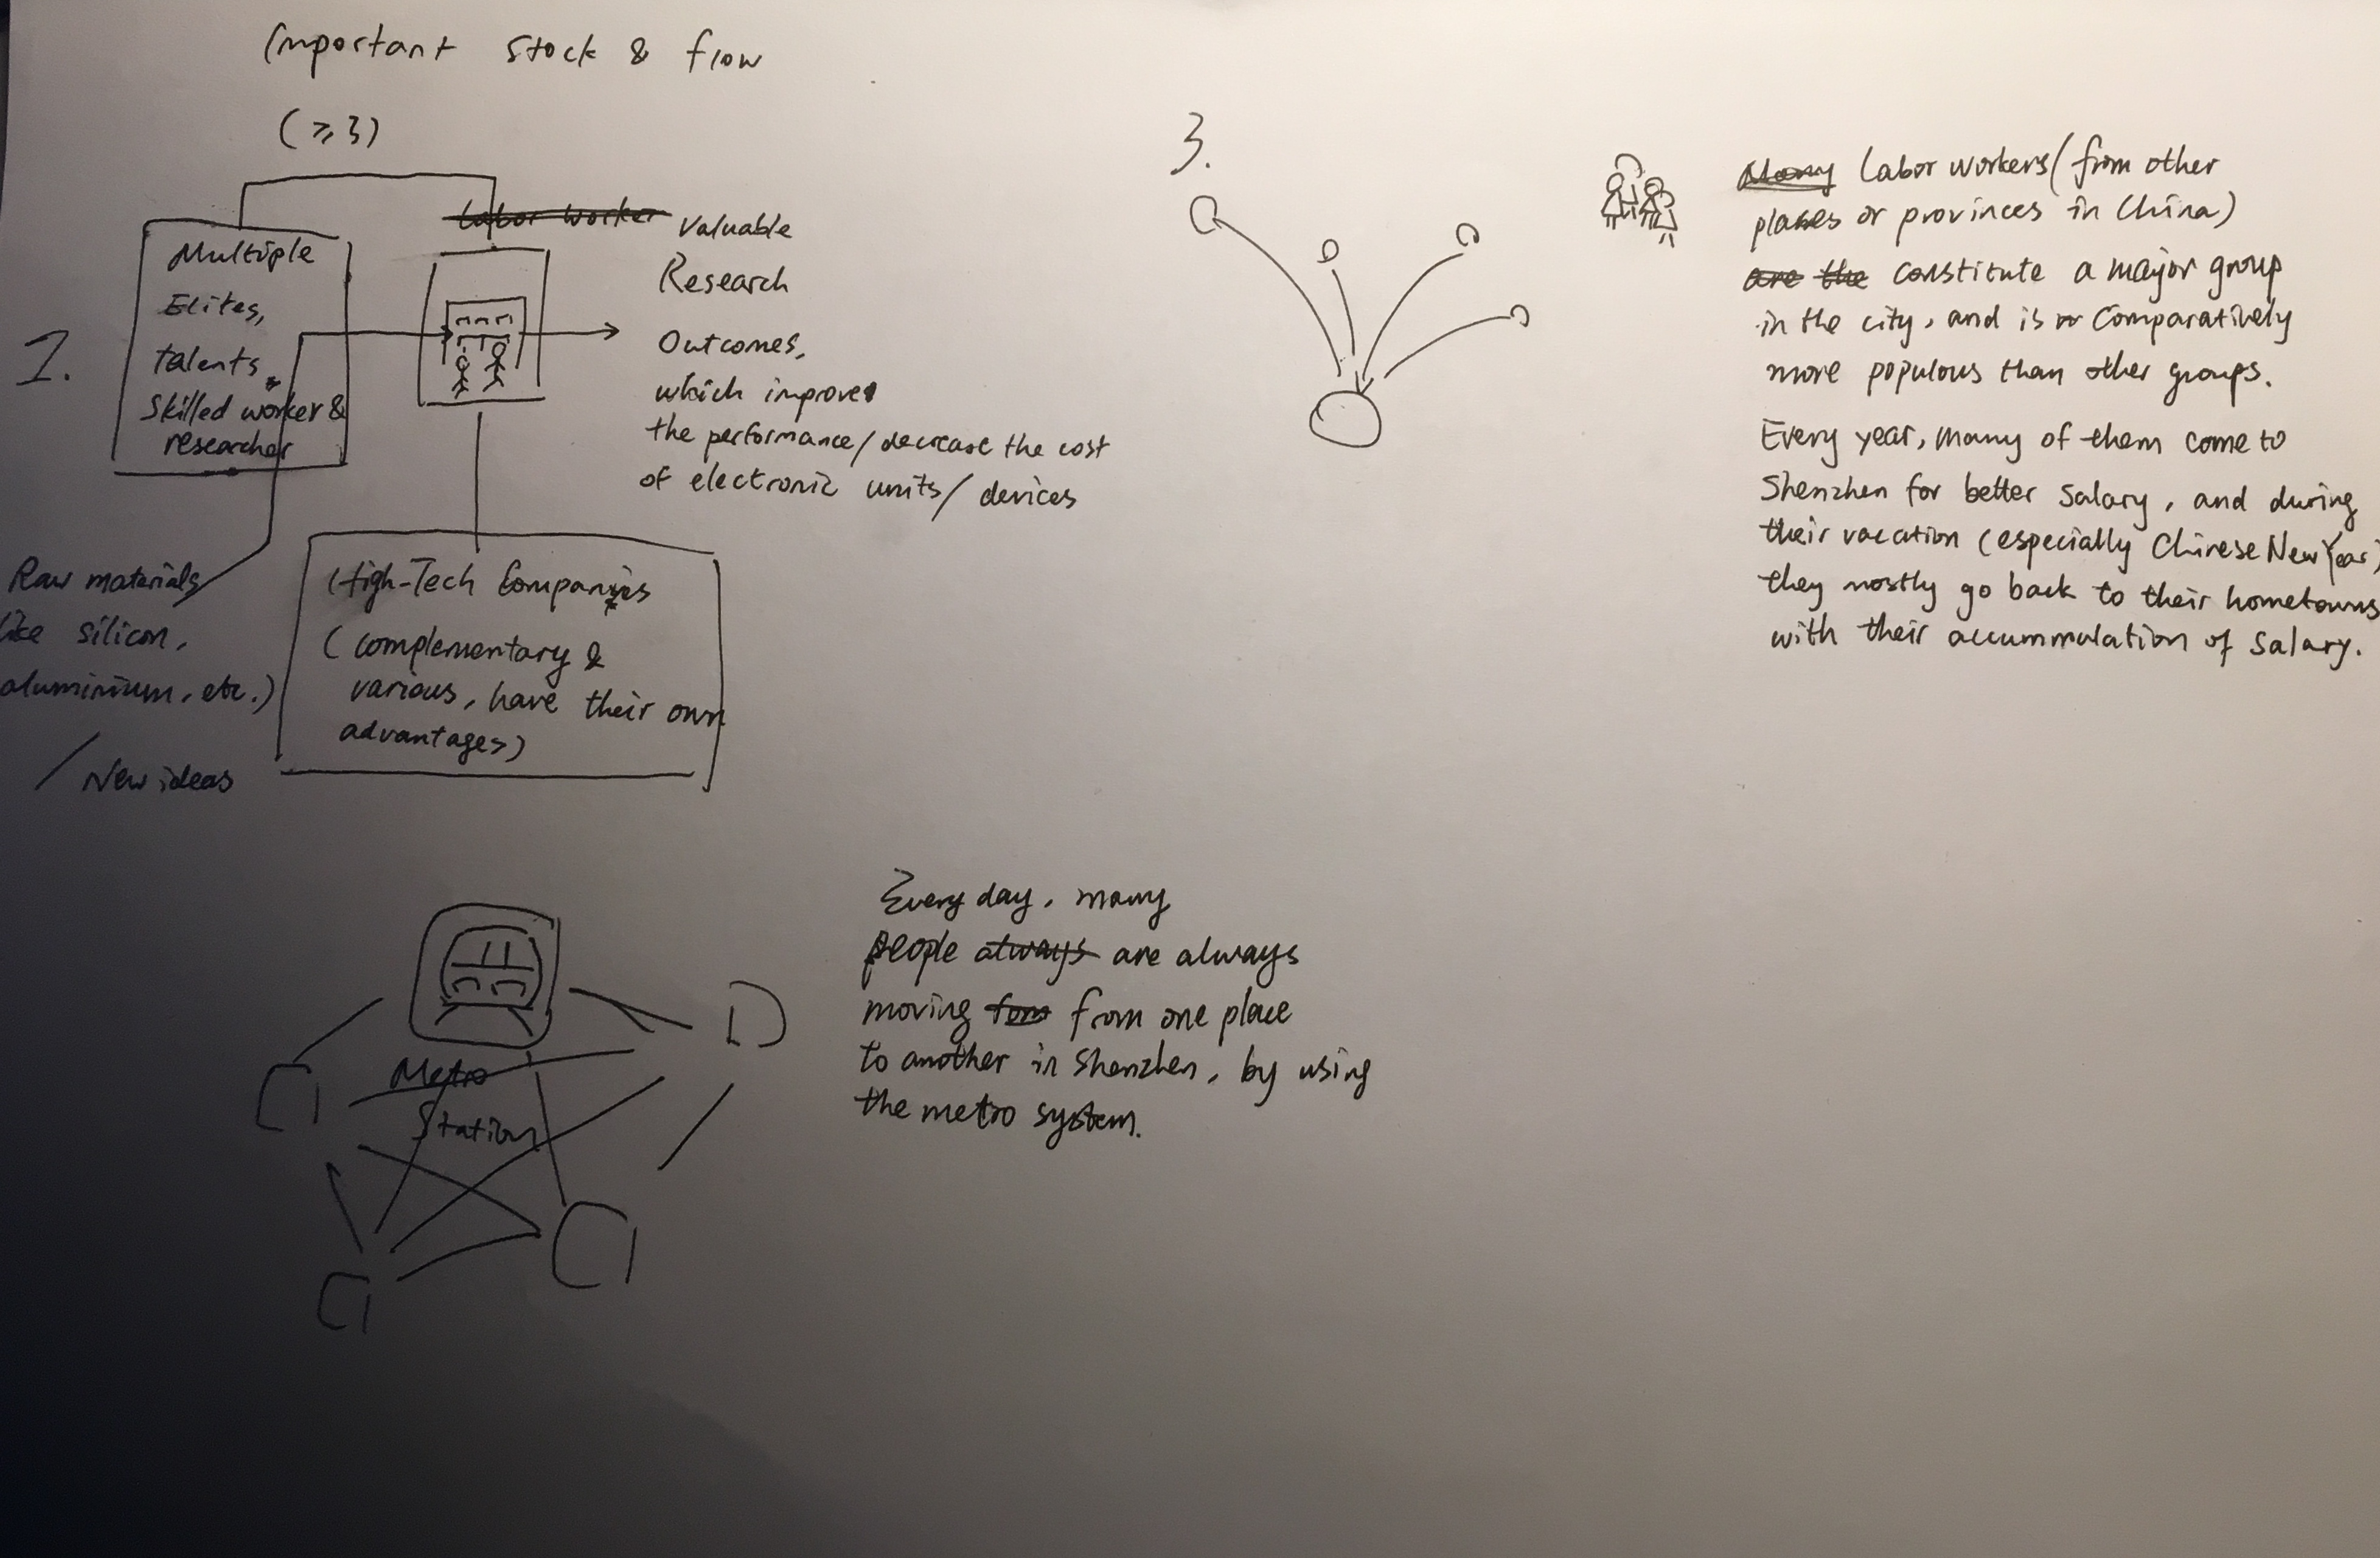 Important stock & flow
(≥3)
1.
Multiple
Elites,
talents,
Skilled worker &
researcher
Labor worker
Valuable
Research
Outcomes,
which improves
the performance/decrease the cost
of electronic units/devices
Raw materials
like silicon,
aluminium, etc.)
/ New ideas
High-Tech Companies
(complementary &
various, have their own
advantages)
3.
Many Labor workers (from other
places or provinces in China)
are the constitute a major group
in the city, and is comparatively
more populous than other groups.
Every year, many of them come to
Shenzhen for better salary, and during
their vacation (especially Chinese New Year)
they mostly go back to their hometowns
with their accummulation of salary.
Metro
Station
Every day, many
people always are always
moving from one place
to another in Shenzhen, by using
the metro system.